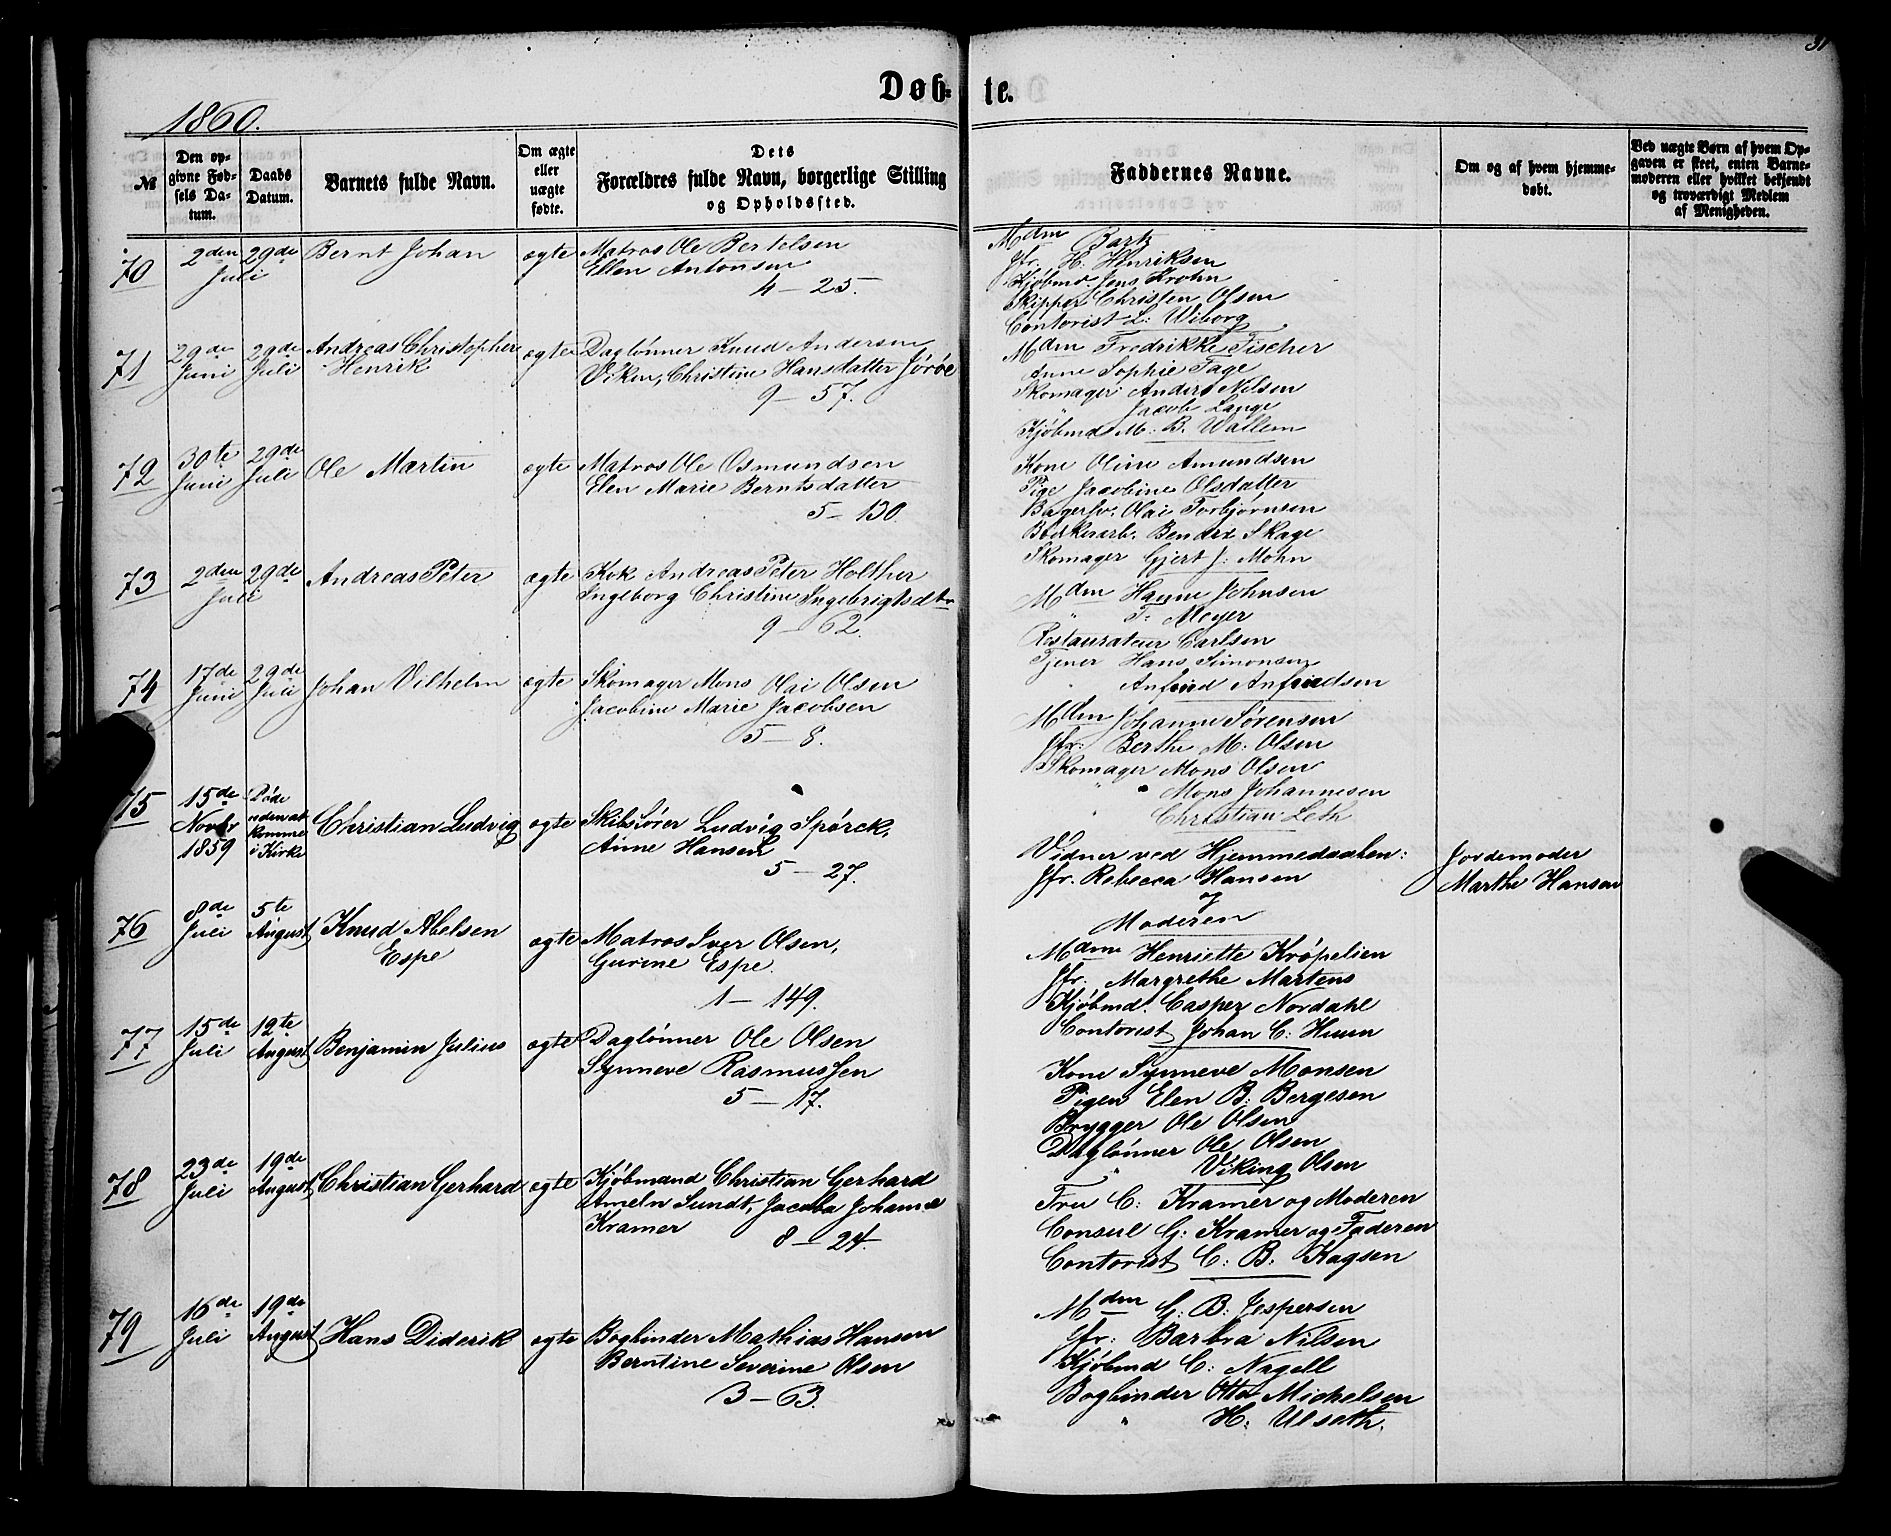 31
Døb- te.
1860.
№
Den op-
givne Fød-
sels Da-
tum.
Daabs
Datum.
Barnets fulde Navn.
Om ægte
eller
uægte
fødte.
Dets
Forældres fulde Navn, borgerlige Stilling
og Opholdssted.
Faddernes Navne.
Om og af hvem hjemme-
døbt.
Ved uægte Børn af hvem Op-
gaven er skeet, enten Barne-
moderen eller hvilket bekjendt
og troværdigt Medlem
af Menigheden.
70
2den
Juli
29de
Bernt Johan
ægte
Matros Ole Bertelsen
Ellen Antonsen
4 – 25.
Mdm Bartz
Jfr. H. Henriksen
Kjöbmd. Jens Krohn
Skipper Christen Olsen
Contorist L: Wiborg
71
29de
Juni
29de
Juli
Andreas Christopher
Henrik
ægte
Daglønner Knud Andersen
Viken, Christine Hansdatter Jøröe
9 – 57.
Mdm Fredrikke Fischer
Anne Sophie Fage
Skomager Anders Nilsen
" Jacob Lange
Kjöbmd M: B. Wallem
72
30te
Juni
29de
Juli
Ole Martin
ægte
Matros Ole Osmundsen
Elen Marie Berntsdatter
5 – 130.
Kone Oline Amundsen
Pige Jacobine Olsdatter
Bagersv. Olai Torbjørnsen
Bødkerarb. Bendix Skage
Skomager Gjert J: Mohn
73
2den
Juli
29de
Andreas Peter
ægte
Kok Andreas Peter Holther
Ingeborg Christine Ingebrigtsdtr
9 – 62.
Mdm Hanne Johnsen
" T: Meyer
Restaurateur Carlsen
Tjener Hans Simonsen
" Anfind Anfindsen
74
17de
Juni
29de
Juli
Johan Vilhelm
ægte
Skomager Mons Olai Olsen
Jacobine Marie Jacobsen
5 – 8.
Mdm Johanne Sørensen
Jfr: Berthe M: Olsen
Skomager Mons Olsen
" Mons Johannesen
Christian Leth
75
15de
Novbr
1859
Døde
uden at
komme
i Kirke
Christian Ludvig
ægte
Skibsfører Ludvig Spörck,
Anne Hansen
5 – 27.
Vidner ved Hjemmedaaben:
Jfr. Rebecca Hansen
og
Moderen
Jordemoder
Marthe Hansen
76
8de
Juli
5te
August
Knud Abelsen
Espe
ægte
Matros Iver Olsen,
Gurine Espe.
1 – 149.
Mdme Henriette Kröpelien
Jfr. Margrethe Martens
Kjöbmd. Casper Nordahl
Contorist Johan C: Huun
77
15de
Juli
12te
August
Benjamin Julius
ægte
Daglønner Ole Olsen
Synneve Rasmussen
5 – 17.
Kone Synneve Monsen
Pigen Elen B: Bergesen
Brygger Ole Olsen
Daglønner Ole Olsen
" Viking Olsen
78
23de
Juli
19de
August
Christian Gerhard
ægte
Kjøbmand Christian Gerhard
Ameln Sundt, Jacoba Johanne
Kramer
8 – 24.
Fru C: Kramer og Moderen
Consul G: Kramer og Faderen
Contorist C: B: Kagsen
79
16de
Juli
19de
August
Hans Diderik
ægte
Bogbinder Mathias Hansen
Berntine Severine Olsen
3 – 63.
Mdm G: B: Jespersen
Jfr: Barbra Nilsen
Kjöbmd C: Nagell
Bogbinder Otto Michelsen
" H: Ulseth.